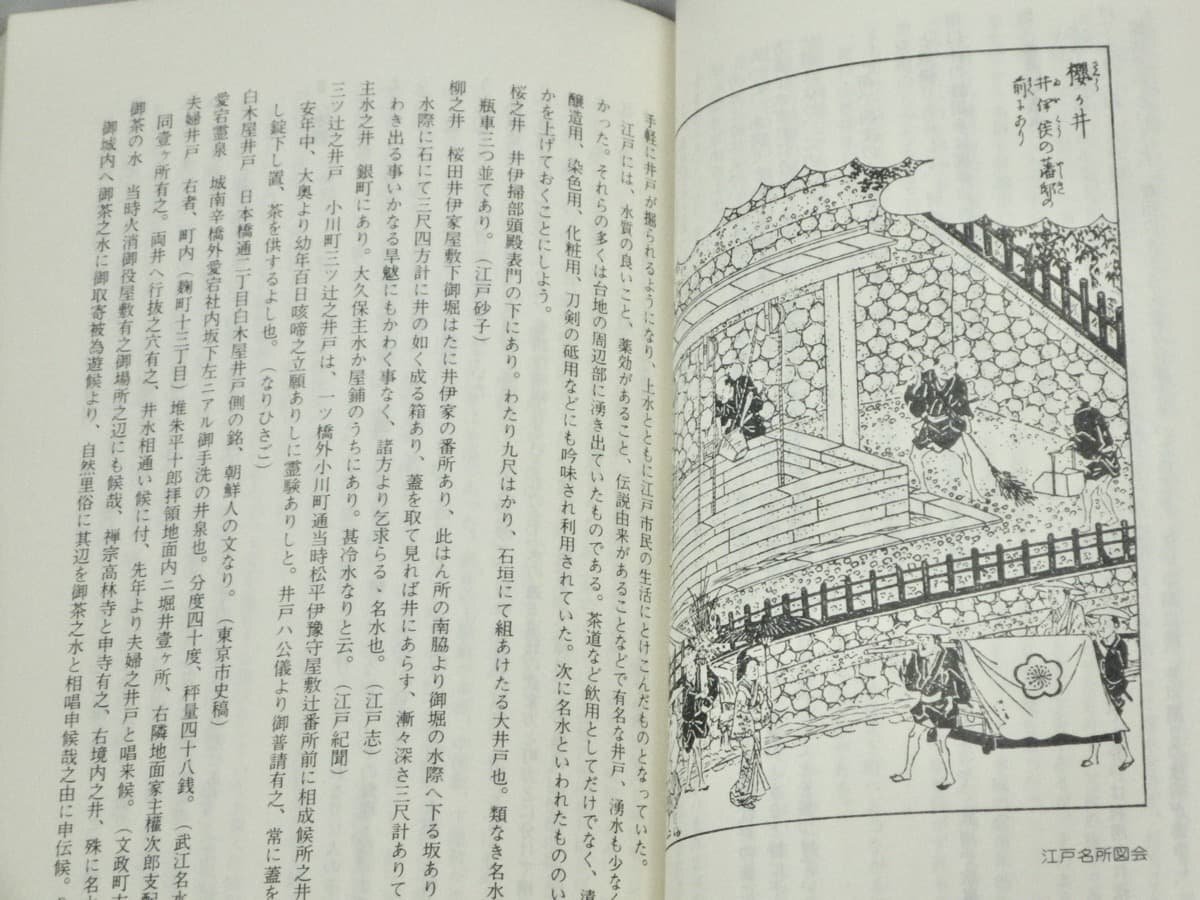 櫻か井
井伊侯の藩邸の
前にあり
江戸名所図会
手軽に井戸が掘られるようになり、上水とともに江戸市民の生活にとけこんだものとなっていた。
江戸には、水質の良いこと、薬効があること、伝説由来があることなどで有名な井戸、湧水も少なく
かった。それらの多くは台地の周辺部に湧き出ていたものである。茶道など飲用としてだけでなく、清
醸造用、染色用、化粧用、刀剣の砥用などにも吟味され利用されていた。次に名水といわれたもののい
かを上げておくことにしよう。
桜之井 井伊掃部頭殿表門の下にあり。わたり九尺はかり、石垣にて組あけたる大井戸也。類なき名水
瓶車三つ並てあり。(江戸砂子)
柳之井 桜田井伊家屋敷下御堀はたに井伊家の番所あり、此はん所の南脇より御堀の水際へ下る坂あり
水際に石にて三尺四方計に井の如く成る箱あり、蓋を取て見れば井にあらす、漸々深さ三尺計ありて
わき出る事いかなる旱魃にもかわく事なく、諸方より乞求らる、名水也。(江戸志)
主水之井 銀町にあり。大久保主水か屋鋪のうちにあり。甚冷水なりと云。(江戸紀聞)
三ツ辻之井戸 小川町三ツ辻之井戸は、一ツ橋外小川町通当時松平伊豫守屋敷辻番所前に相成候所之井
安年中、大奥より幼年百日咳啼之立願ありしに霊験ありしと。井戸ハ公儀より御普請有之、常に蓋を
し錠下し置、茶を供するよし也。(なりひさご)
白木屋井戸 日本橋通二丁目白木屋井戸側の銘、朝鮮人の文なり。(東京市史稿)
愛宕霊泉 城南辛橋外愛宕社内坂下左ニアル御手洗の井泉也。分度四十度、秤量四十八銭。(武江名水
夫婦井戸 右者、町内(麹町十三丁目)堆朱平十郎拝領地面内ニ堀井壹ヶ所、右隣地面家主權次郎支配
同壹ヶ所有之。両井へ行抜之穴有之、井水相通い候に付、先年より夫婦之井戸と唱来候。(文政町方
御茶の水 当時火消御役屋敷有之御場所之辺にも候哉、禅宗高林寺と申寺有之、右境内之井、殊に名
御城内へ御茶之水に御取寄被為遊候より、自然里俗に其辺を御茶之水と相唱申候哉之由に申伝候。